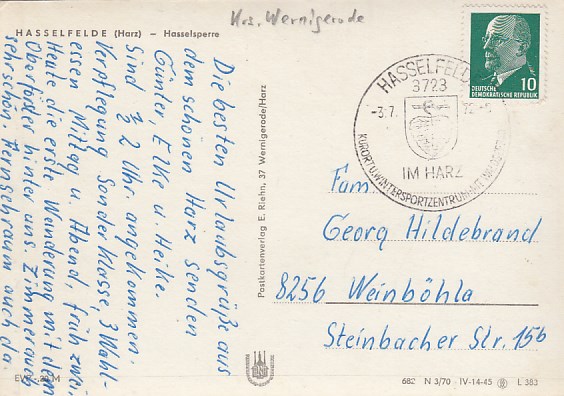 Krs. Wernigerode
HASSELFELDE (Harz) – Hasselsperre
Die besten Urlaubsgrüße aus
dem schönen Harz senden
Günter, Elke u. Heike.
Sind ½ 2 Uhr. angekommen.
Verpflegung Sonderklasse 3 Wahl-
essen Mittag u. Abend, früh zwei.
Heute die erste Wanderung mit dem
Oberförster hinter uns. Zimmer auch
sehr schön. Fernsehraum auch da.
EVP -,20 M
Postkartenverlag E. Riehn, 37 Wernigerode/Harz
HASSELFELDE
3723
-3.7. 72.-
IM HARZ
KURORT U. WINTERSPORTZENTRUM
DEUTSCHE
DEMOKRATISCHE REPUBLIK
10
Fam
Georg Hildebrand
8256 Weinböhla
Steinbacher Str. 15b
682 N 3/70 IV-14-45 L 383